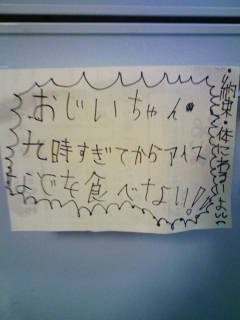 おじいちゃん
九時すぎてからアイス
などを食べない!!
・約束・体にわるいよ